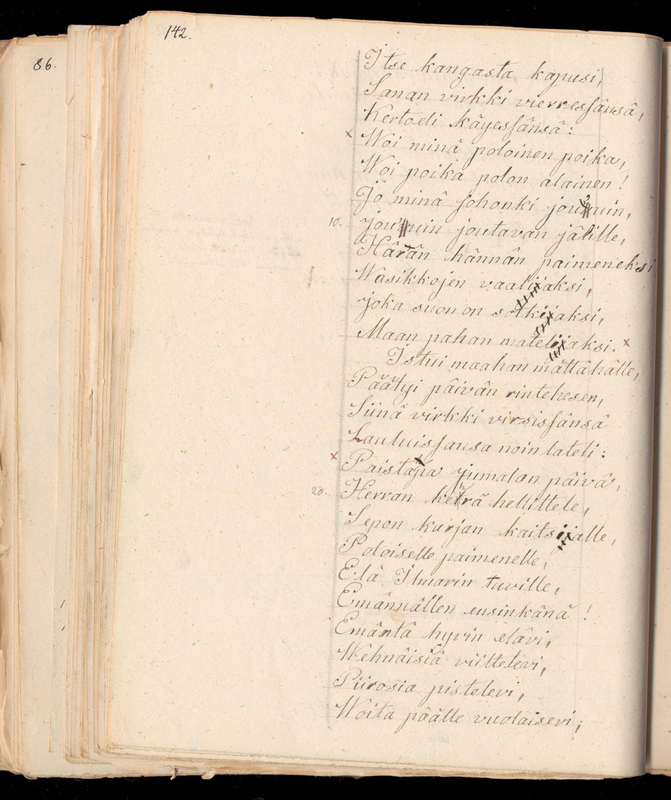 142.
86.
Itse kangasta kapusi,
Sanan virkki vierressänsä,
Kertoeli käyessänsä:
Woi minä poloinen poika,
Woi poika polon alainen!
Jo minä johonki
10. joutavan jälille,
Härän hännän paimeneksi
Wasikkojen vaalijaksi,
Joka suon on sotkijaksi,
Maan pahan matelijaksi.
Istui maahan mättähälle,
Päätyi päivän rintehesen,
Siinä virkki virsissänsä
Lauluissansa noin lateli:
Paista jumalan päivä,
20. Herran hellittele,
Sepon karjan kaitsijalle,
Poloiselle paimenelle,
Elä Ilmarin tuville,
Emännällen ensinkänä!
Emäntä hyvin elävi,
Wehnäisiä viiltelevi,
Piirosia pistelevi,
Woita päälle vuolaisevi;